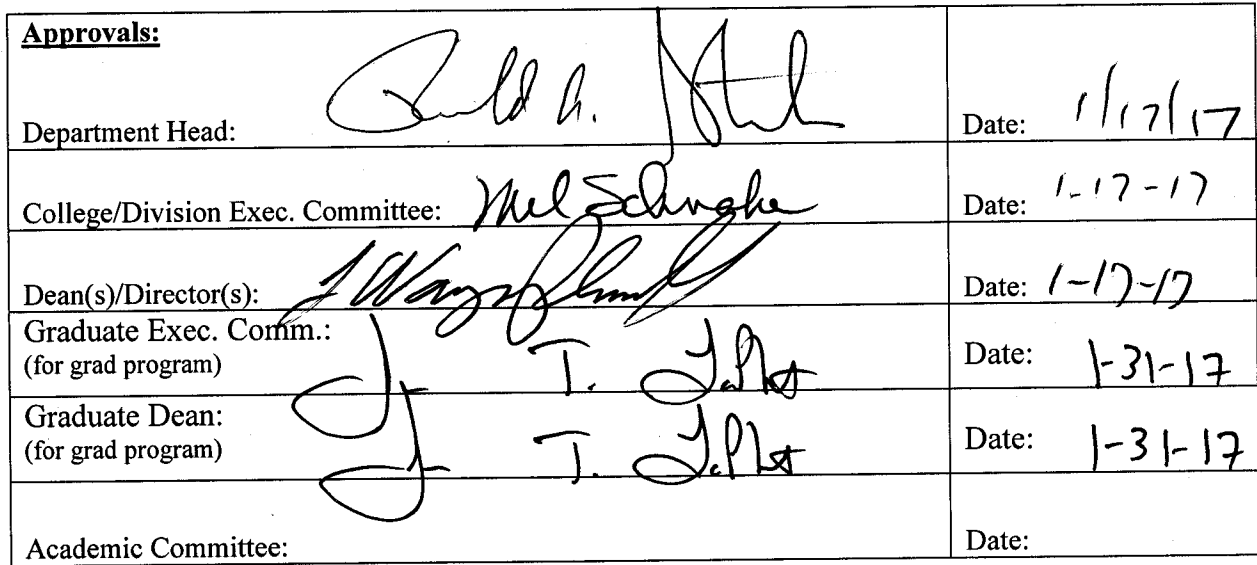 Approvals:
Department Head:
Date: 1/17/17
College/Division Exec. Committee: Mel Schnake
Date: 1-17-17
Dean(s)/Director(s):
Date: 1-17-17
Graduate Exec. Comm.:
(for grad program)
T.
Date: 1-31-17
Graduate Dean:
(for grad program)
T.
Date: 1-31-17
Academic Committee:
Date: